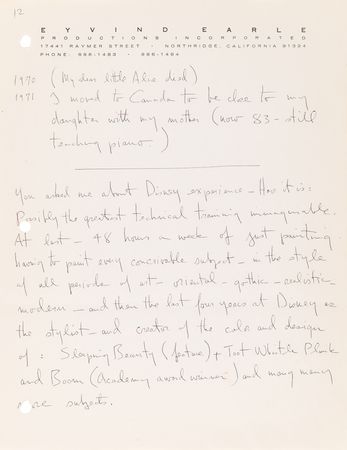 12
EYVIND EARLE
PRODUCTIONS INCORPORATED
17441 RAYMER STREET · NORTHRIDGE, CALIFORNIA 91324
PHONE: 886-1483 · 886-1484
1970 (My dear little Alice died)
1971 I moved to Canada to be close to my
daughter with my mother (now 83 - still
teaching piano.)
You asked me about Disney experience - Here it is:
Possibly the greatest technical training imaginable.
At last - 48 hours a week of just painting.
having to paint every conceivable subject - in the style
of all periods of art - oriental - gothic - realistic -
modern - and then the last four years at Disney as
the stylist - and creator of the color and design
of: Sleeping Beauty (feature) + Toot Whistle Plunk
and Boom (Academy award winner) and many many
more subjects.